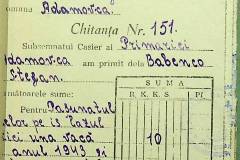 omuna Adamovca.
Chitanţa Nr. 151.
Subsemnatul Casier al Primariei
Adamovca am primit dela Babenco
Stefan.
mătoarele sume:
SUMA
R. K. K. S. R.
Pentru Pasunatul
pe is
una vacă 10
anul 1943 și